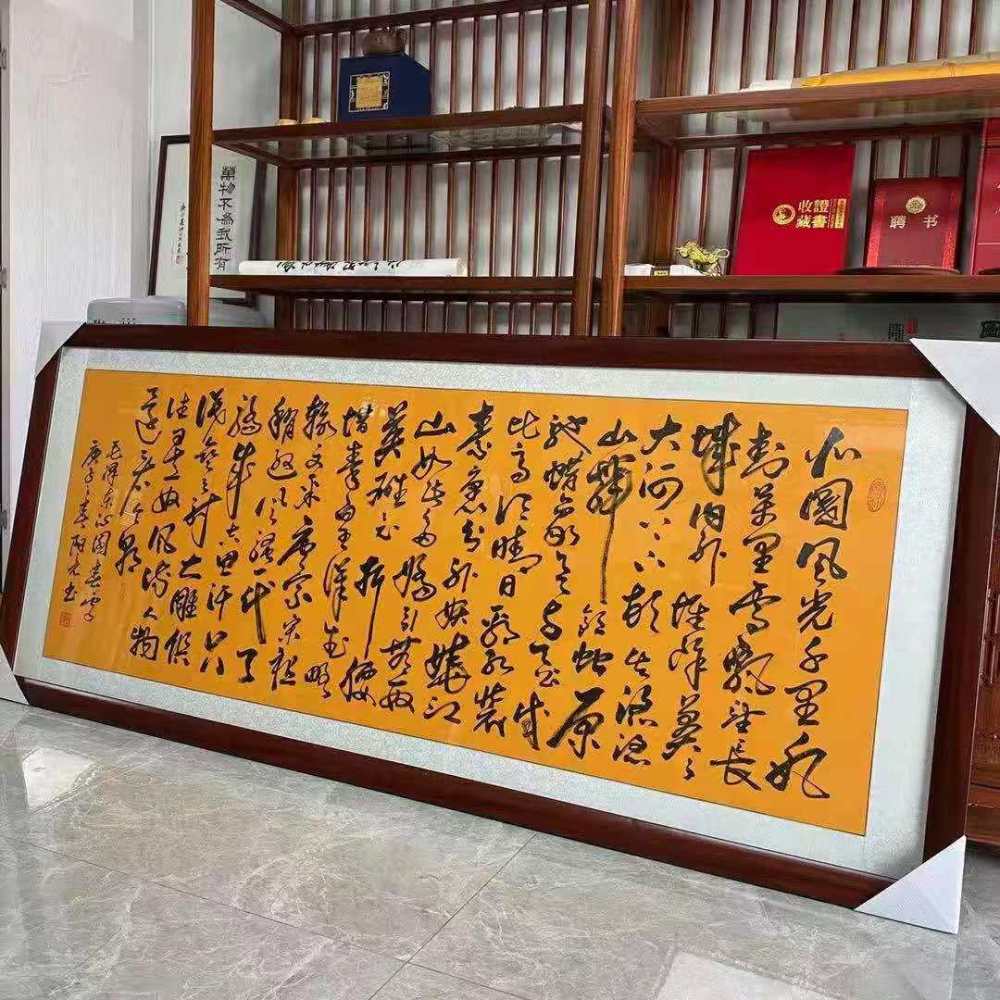 北國风光千里冰
封萬里雪飘望長
城内外惟馀莽莽
大河上下顿失滔滔
山舞银蛇原
驰蜡象欲与天公
比高须晴日看红装
素裹分外妖娆江
山如此多娇引无数
英雄竞折腰
惜秦皇漢武略
输文采唐宗宋祖
稍逊风骚一代天
骄成吉思汗只
识弯弓射大雕俱
往矣数风流人物
还看今朝
毛泽东沁園春雪
庚子之春
萬物不為我所有
收藏
證書
聘书